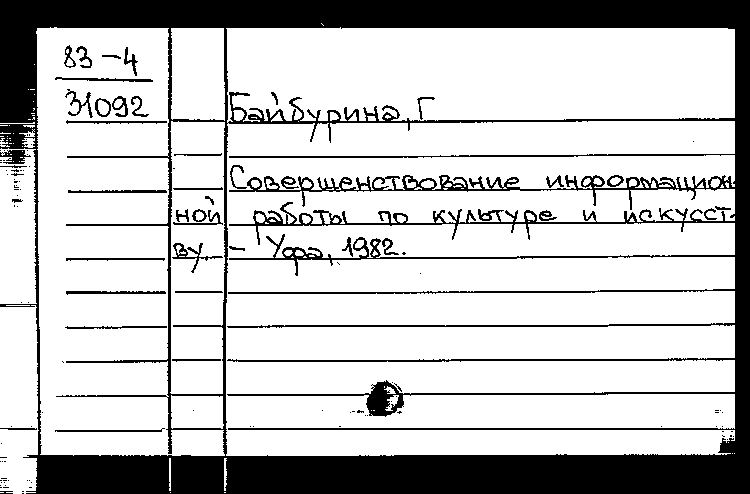 83-4
31092
Байбурина, Г
Совершенствование информацион-
ной работы по культуре и искусст-
ву. - Уфа, 1982.